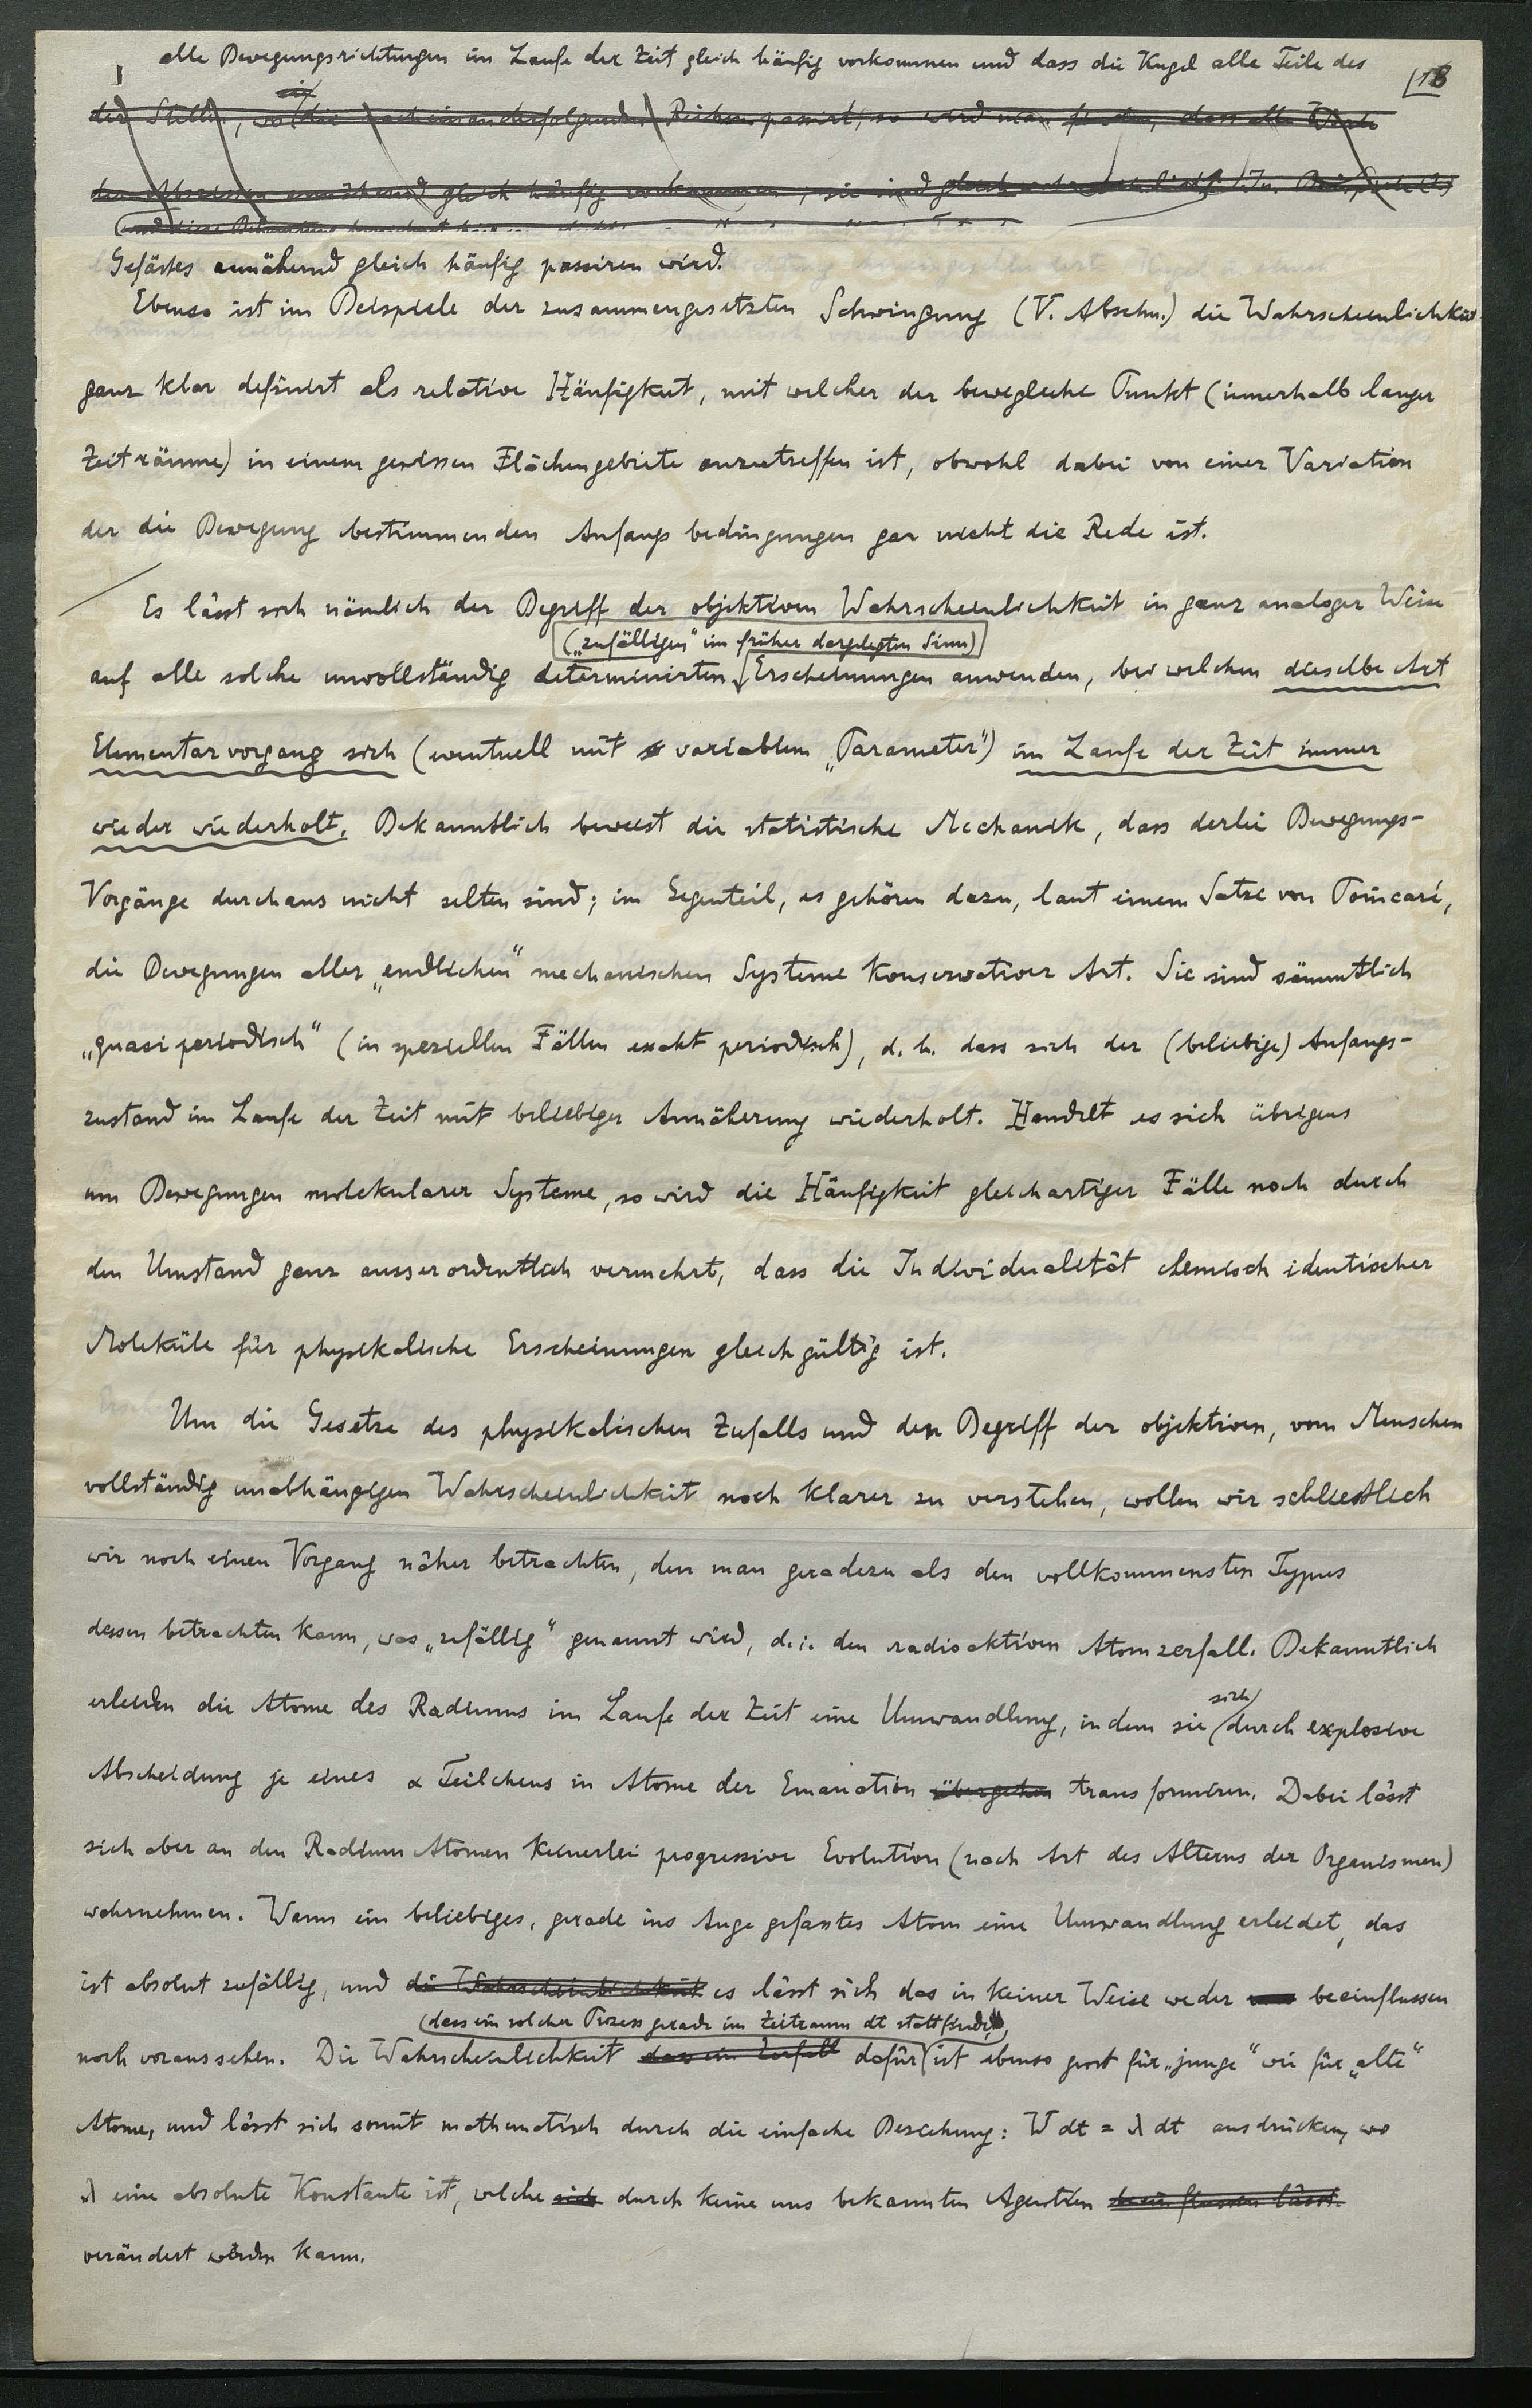 alle Bewegungsrichtungen im Laufe der Zeit gleich häufig vorkommen und dass die Kugel alle Teile des
18
der Stelle, wo die nacheinanderfolgenden passirt, so wird man finden, dass alle Werte
der Abszissen annähernd gleich häufig vorkommen, sie sind gleich
Gefässes annähernd gleich häufig passiren wird.
Ebenso ist im Beispiele der zusammengesetzten Schwingung (V. Abschn.) die Wahrscheinlichkeit
ganz klar definirt als relative Häufigkeit, mit welcher der bewegliche Punkt (innerhalb langer
Zeiträume) in einem gewissen Flächengebiete anzutreffen ist, obwohl dabei von einer Variation
der die Bewegung bestimmenden Anfangsbedingungen gar nicht die Rede ist.
Es lässt sich nämlich der Begriff der objektiven Wahrscheinlichkeit in ganz analoger Weise
(„zufälligen" im früher dargelegten Sinn)
auf alle solche unvollständig determinirten Erscheinungen anwenden, bei welchen dieselbe Art
Elementarvorgang sich (eventuell mit variablem „Parameter") im Laufe der Zeit immer
wieder wiederholt. Bekanntlich beweist die statistische Mechanik, dass derlei Bewegungs-
Vorgänge durchaus nicht selten sind; im Gegenteil, es gehören dazu, laut einem Satze von Poincaré,
die Bewegungen aller „endlichen" mechanischen Systeme konservativer Art. Sie sind sämmtlich
„quasiperiodisch" (in speziellen Fällen exakt periodisch), d. h. dass sich der (beliebige) Anfangs-
zustand im Laufe der Zeit mit beliebiger Annäherung wiederholt. Handelt es sich übrigens
um Bewegungen molekularer Systeme, so wird die Häufigkeit gleichartiger Fälle noch durch
den Umstand ganz ausserordentlich vermehrt, dass die Individualität chemisch identischer
Moleküle für physikalische Erscheinungen gleichgültig ist.
Um die Gesetze des physikalischen Zufalls und den Begriff der objektiven, vom Menschen
vollständig unabhängigen Wahrscheinlichkeit noch klarer zu verstehen, wollen wir schliesslich
wir noch einen Vorgang näher betrachten, den man geradezu als den vollkommensten Typus
dessen betrachten kann, was „zufällig" genannt wird, d. i. den radioaktiven Atomzerfall. Bekanntlich
sich
erleiden die Atome des Radiums im Laufe der Zeit eine Umwandlung, indem sie durch explosive
Abscheidung je eines α Teilchens in Atome der Emanation übergehen transformiren. Dabei lässt
sich aber an den Radium Atomen keinerlei progressive Evolution (nach Art des Alterns der Organismen)
wahrnehmen. Wann ein beliebiges, gerade ins Auge gefasstes Atom eine Umwandlung erleidet, das
ist absolut zufällig, und die Wahrscheinlichkeit es lässt sich das in keiner Weise weder beeinflussen
(dass ein solcher Prozess gerade im Zeitraum dt stattfindet,
noch voraussehen. Die Wahrscheinlichkeit dass ein Zerfall dafür ist ebenso gross für „junge" wie für „alte"
Atome, und lässt sich somit mathematisch durch die einfache Beziehung: W dt = λ dt ausdrücken, wo
λ eine absolute Konstante ist, welche sich durch keine uns bekannten Agentien beeinflussen lässt.
verändert werden kann.